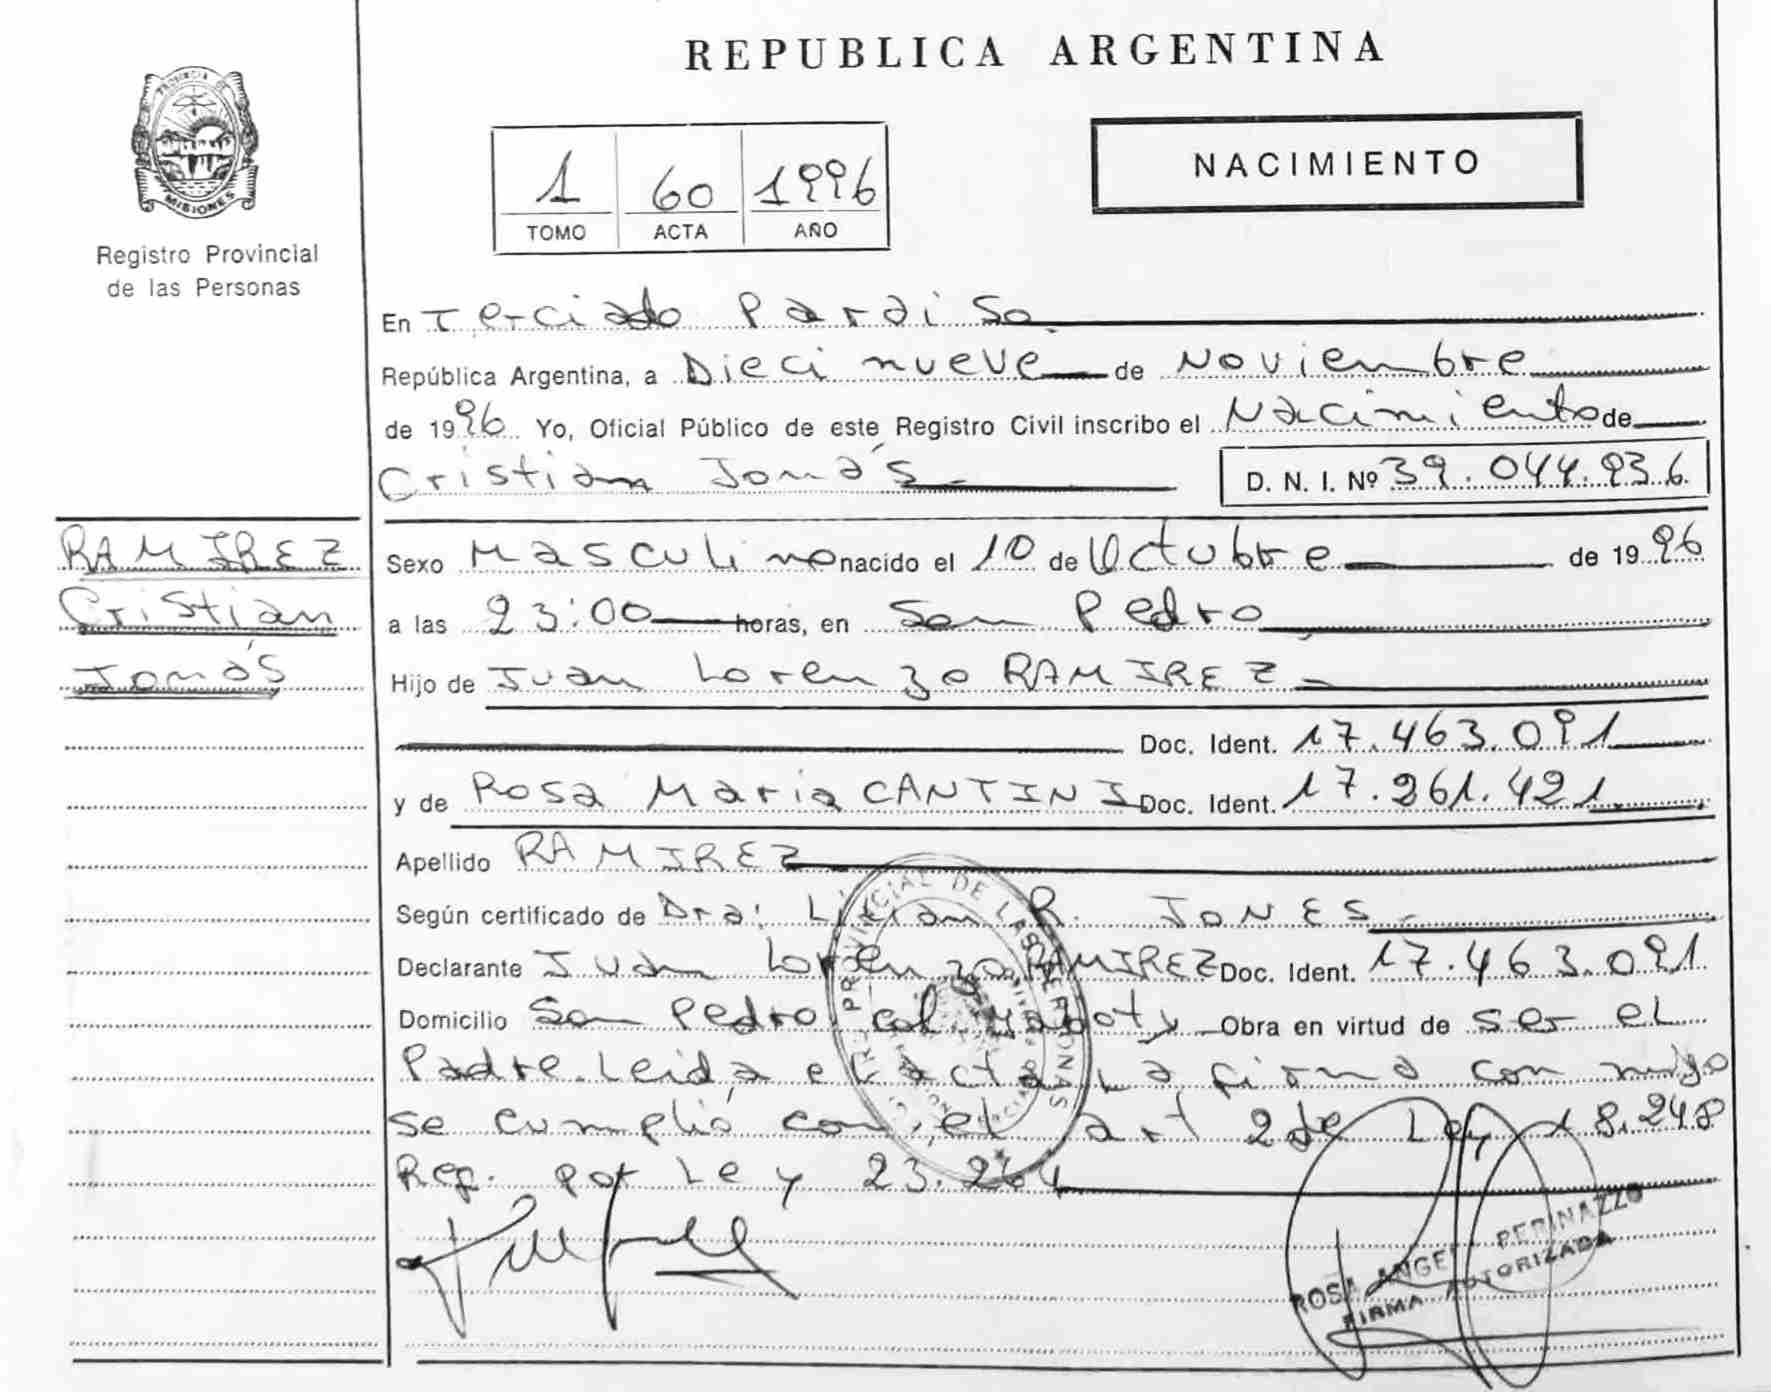 REPUBLICA ARGENTINA
PROVINCIA DE
MISIONES
Registro Provincial
de las Personas
1 60 1996
TOMO ACTA AÑO
NACIMIENTO
En Terciado Paraiso
República Argentina, a Dieci nueve de Noviembre
de 1996 Yo, Oficial Público de este Registro Civil inscribo el Nacimiento de
Cristian Jomás D. N. I. Nº 39.044.936
RAMIREZ
Cristian
Jomás
Sexo Masculino nacido el 10 de Octubre de 1996
a las 23:00 horas, en San Pedro
Hijo de Juan Lorenzo RAMIREZ
Doc. Ident. 17.463.091
y de Rosa Maria CANTINI Doc. Ident. 17.261.421
Apellido RAMIREZ
Según certificado de Dra: Lilian R. JONES
Declarante Juan Lorenzo RAMIREZ Doc. Ident. 17.463.091
Domicilio San Pedro Col. Yaboty Obra en virtud de ser el
Padre. Leida el acta La firma con migo
se cumplió con el art 2 de Ley 18.248
Rep. por Ley 23.264
PROVINCIAL DE LAS PERSONAS
ROSA PERINAZZO
FIRMA AUTORIZADA